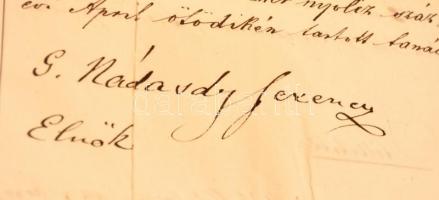 nyolcz száz
évi April ötödikén tartott taná
G. Nádasdy Ferencz
Elnök